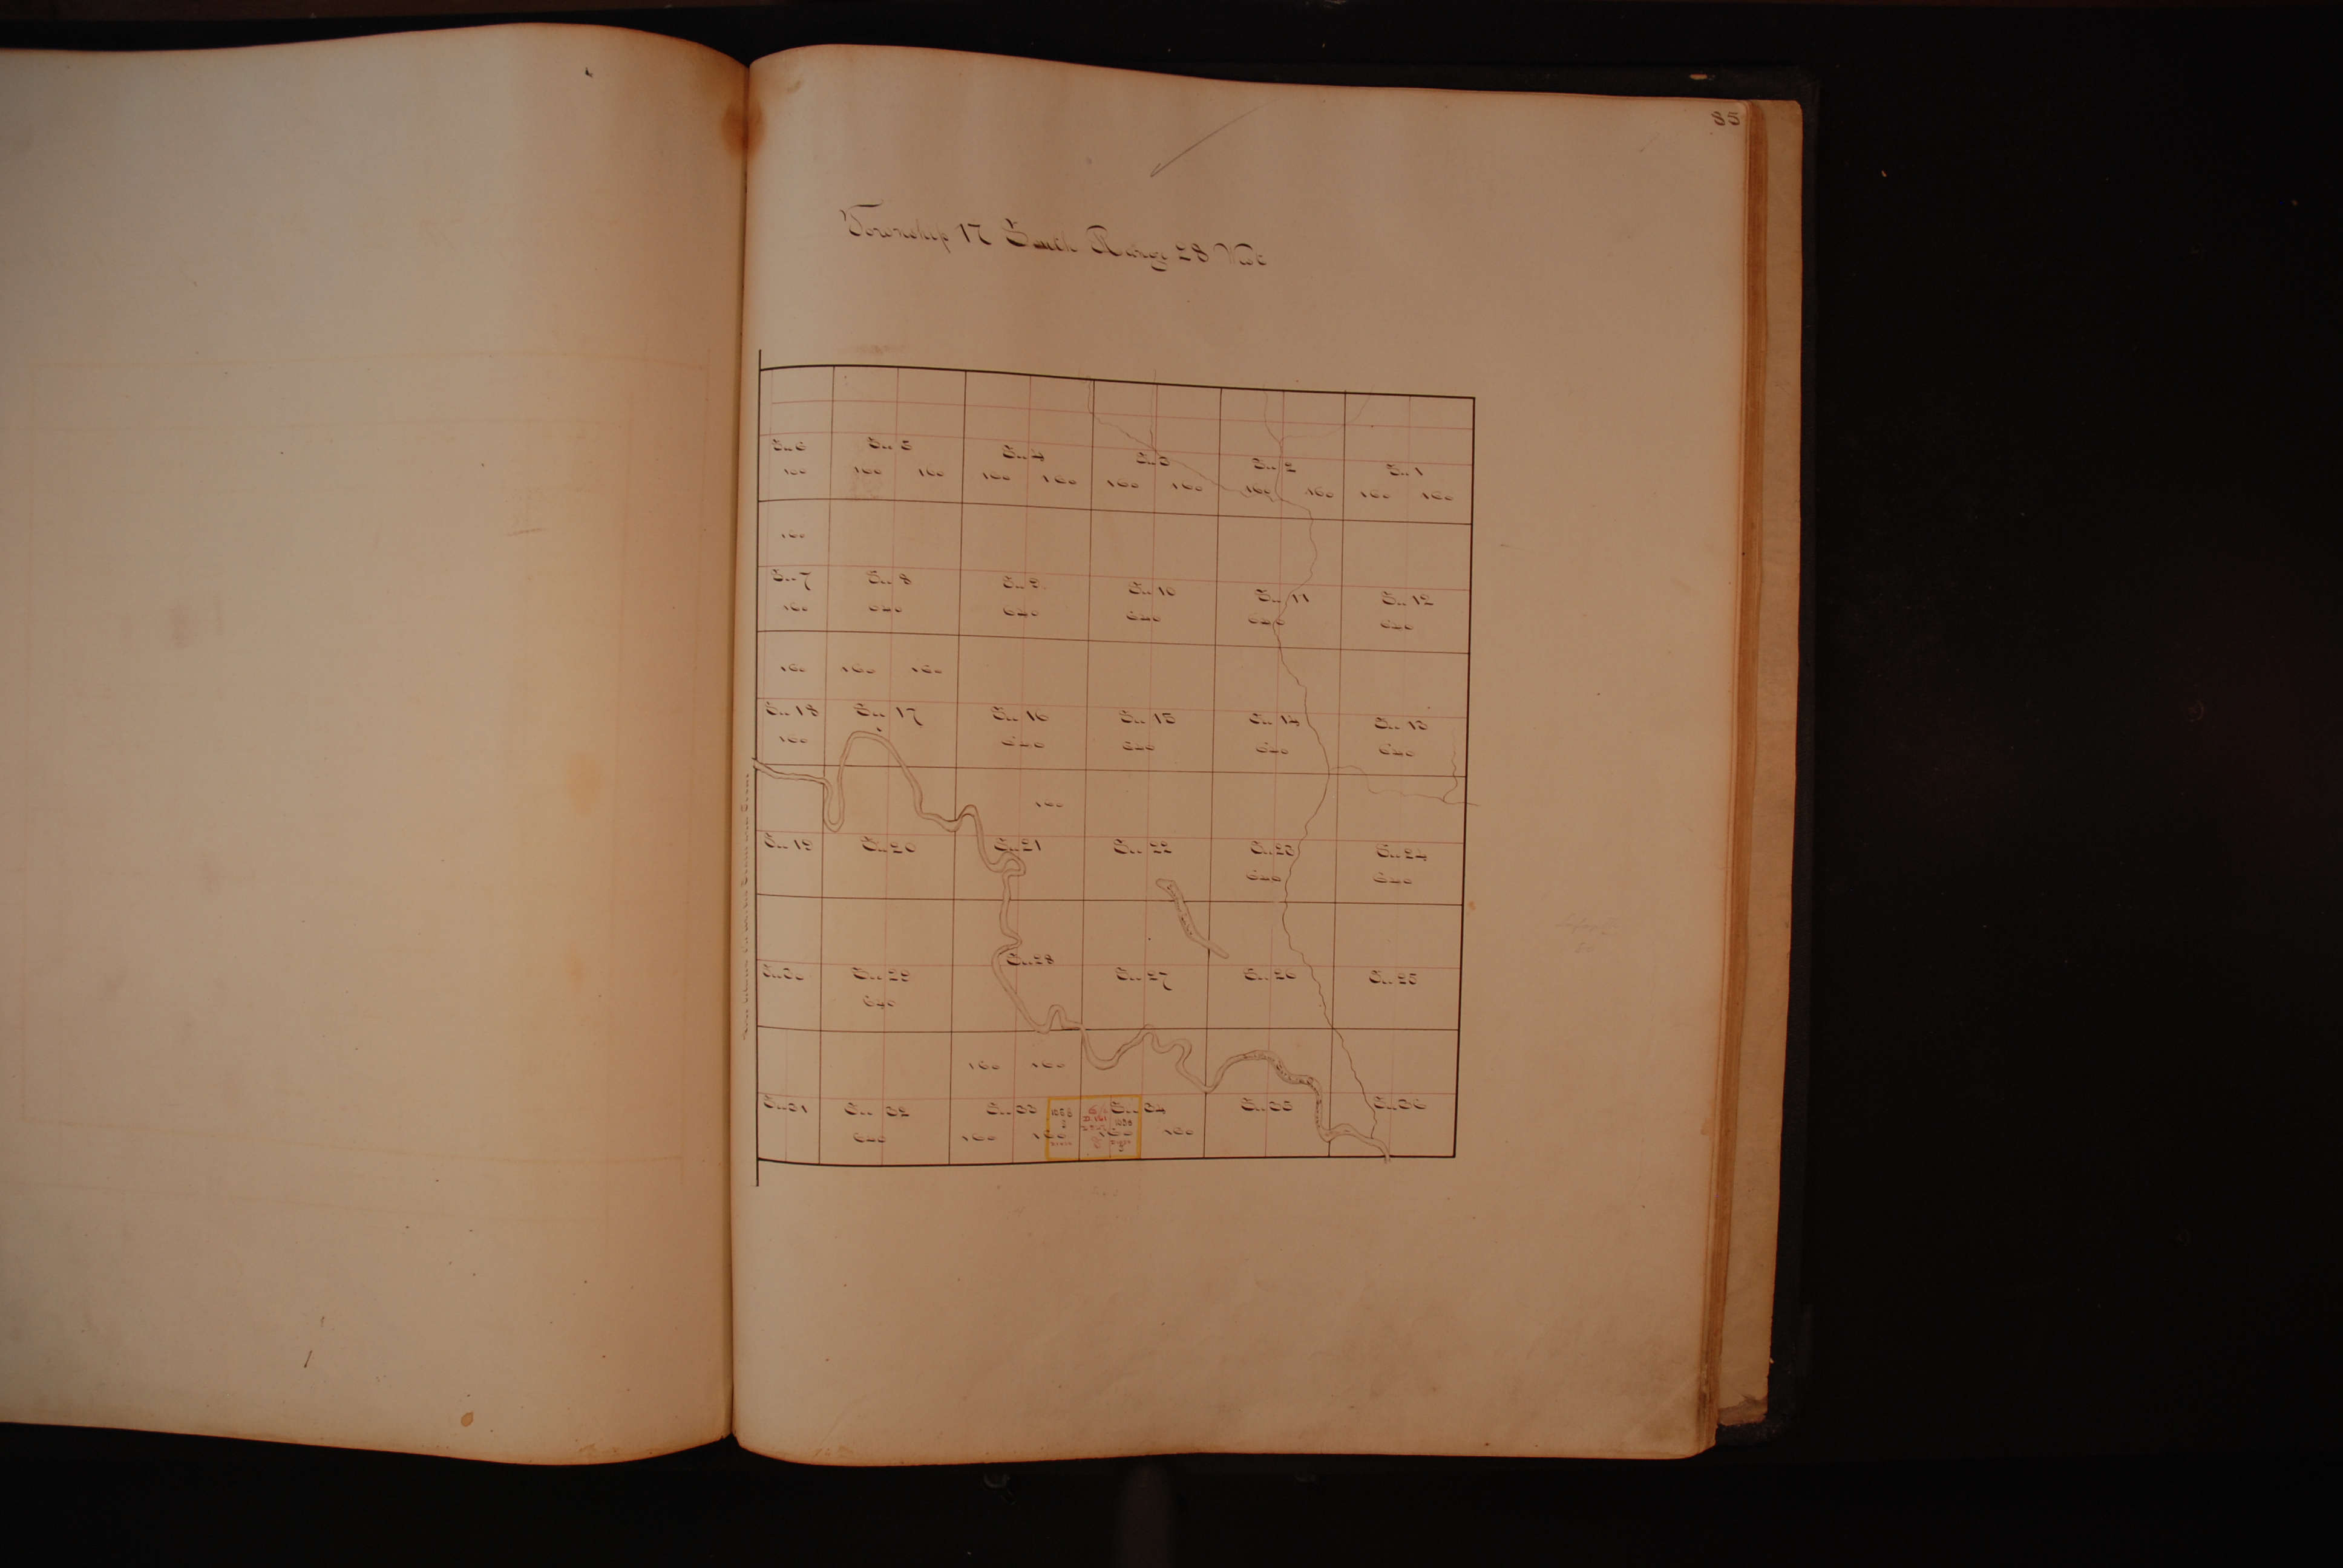 85
Township 17 South Range 28 West
Sec 6 Sec 5 Sec 4 Sec 3 Sec 2 Sec 1
160 160 160 160 160 160 160 160 160 160 160
160
Sec 7 Sec 8 Sec 9 Sec 10 Sec 11 Sec 12
160 640 640 640 640 640
160 160 160
Sec 18 Sec 17 Sec 16 Sec 15 Sec 14 Sec 13
160 640 640 640 640
160
Sec 19 Sec 20 Sec 21 Sec 22 Sec 23 Sec 24
640 640
Sec 30 Sec 29 Sec 28 Sec 27 Sec 26 Sec 25
640
160 160
Sec 31 Sec 32 Sec 33 Sec 34 Sec 35 Sec 36
640 160 160 160 160
Line between